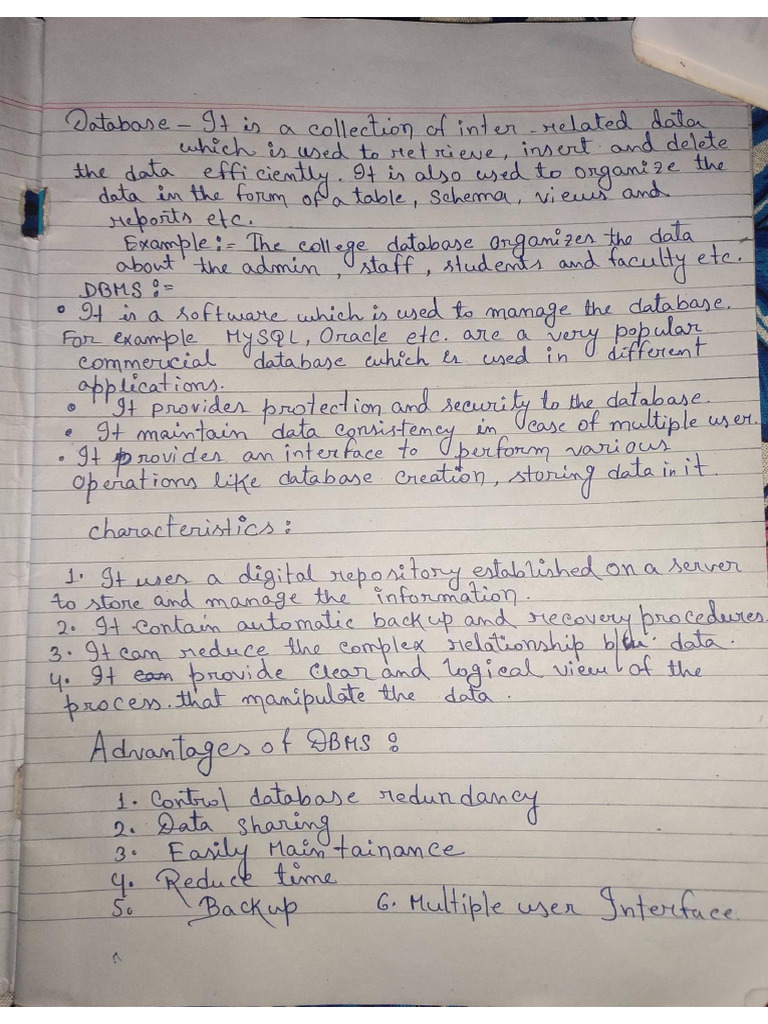 Database - It is a collection of inter-related data
which is used to retrieve, insert and delete
the data efficiently. It is also used to organize the
data in the form of a table, schema, views and
reports etc.
Example:- The college database organizes the data
about the admin, staff, students and faculty etc.
DBMS :=
• It is a software which is used to manage the database.
For example MySQL, Oracle etc. are a very popular
commercial database which is used in different
applications.
• It provides protection and security to the database.
• It maintain data consistency in case of multiple user.
• It provides an interface to perform various
operations like database creation, storing data in it.
Characteristics:
1. It uses a digital repository established on a server
to store and manage the information.
2. It contain automatic backup and recovery procedures.
3. It can reduce the complex relationship b/w. data.
4. It can provide clear and logical view of the
process. that manipulate the data.
Advantages of DBMS :
1. Control database redundancy
2. Data sharing
3. Easily Maintainance
4. Reduce time
5. Backup 6. Multiple user Interface.